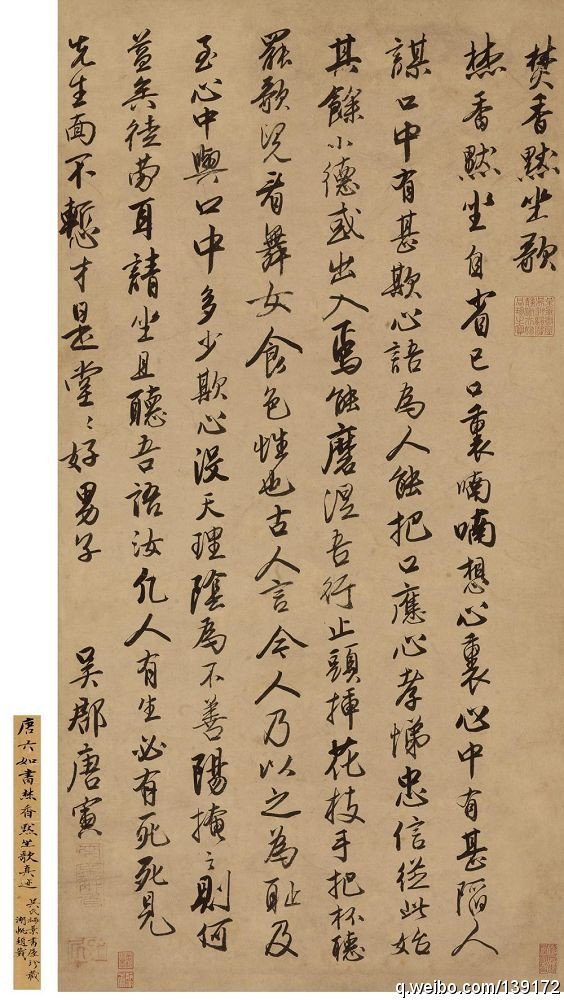 焚香默坐歌
焚香默坐自省己口裏喃喃想心裏心中有甚陷人
謀口中有甚欺心語為人能把口應心孝悌忠信從此始
其餘小德或出入焉能磨涅吾行止頭插花枝手把杯聽
罷歌兒看舞女食色性也古人言今人乃以之為恥及
至心中與口中多少欺心没天理陰為不善陽掩之則何
益矣徒勞耳請坐且聽吾語汝凡人有生必有死死見
先生面不慙才是堂〻好男子
吳郡唐寅
唐六如書焚香默坐歌真迹
吳氏梅景書屋珍藏
湖帆題籤
q.weibo.com/139172